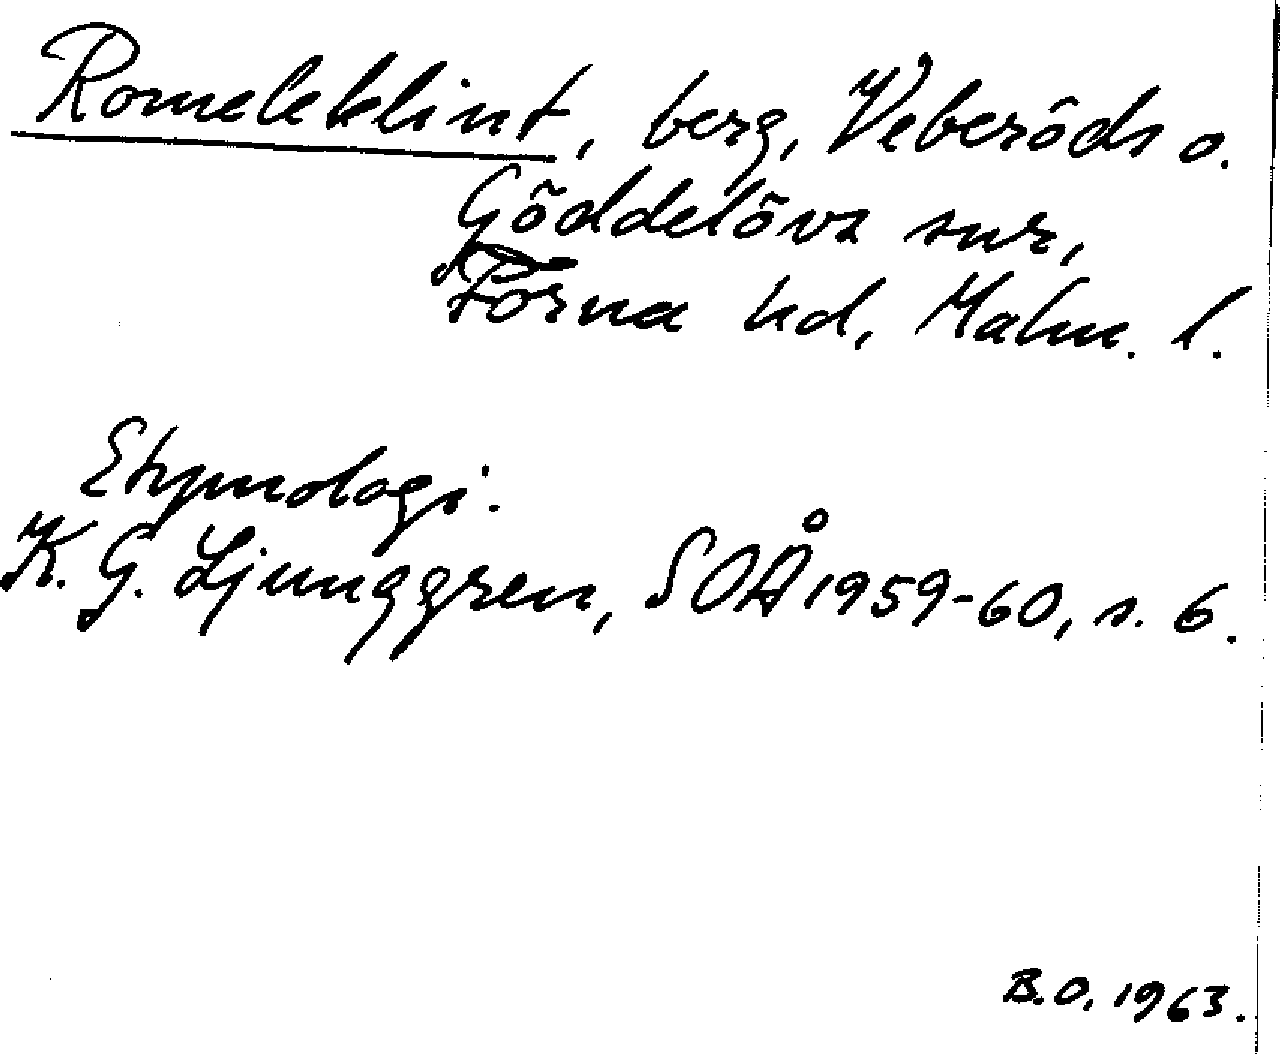 Romeleklint, berg, Veberöds o.
Göddelövs snr,
Torna hd, Malm. l.
Etymologi.
K. G. Ljunggren, SOÅ 1959-60, s. 6.
B.O. 1963.